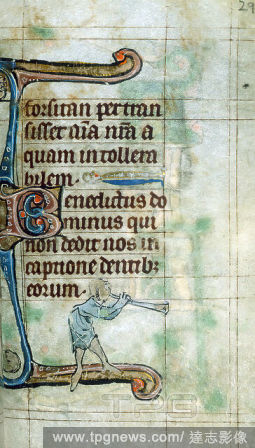 29
forsitan pertran
sisset aīa nr̄a a
quam intollera
bilem.
Benedictus do
minus qui
non dedit nos in
captione dentibꝫ
eorum.
TPG
www.tpgnews.com/達志影像